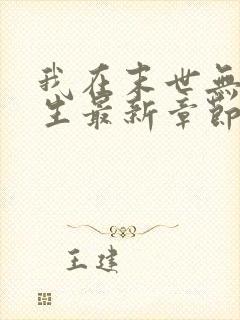 我在末世無
生最新章節
王建